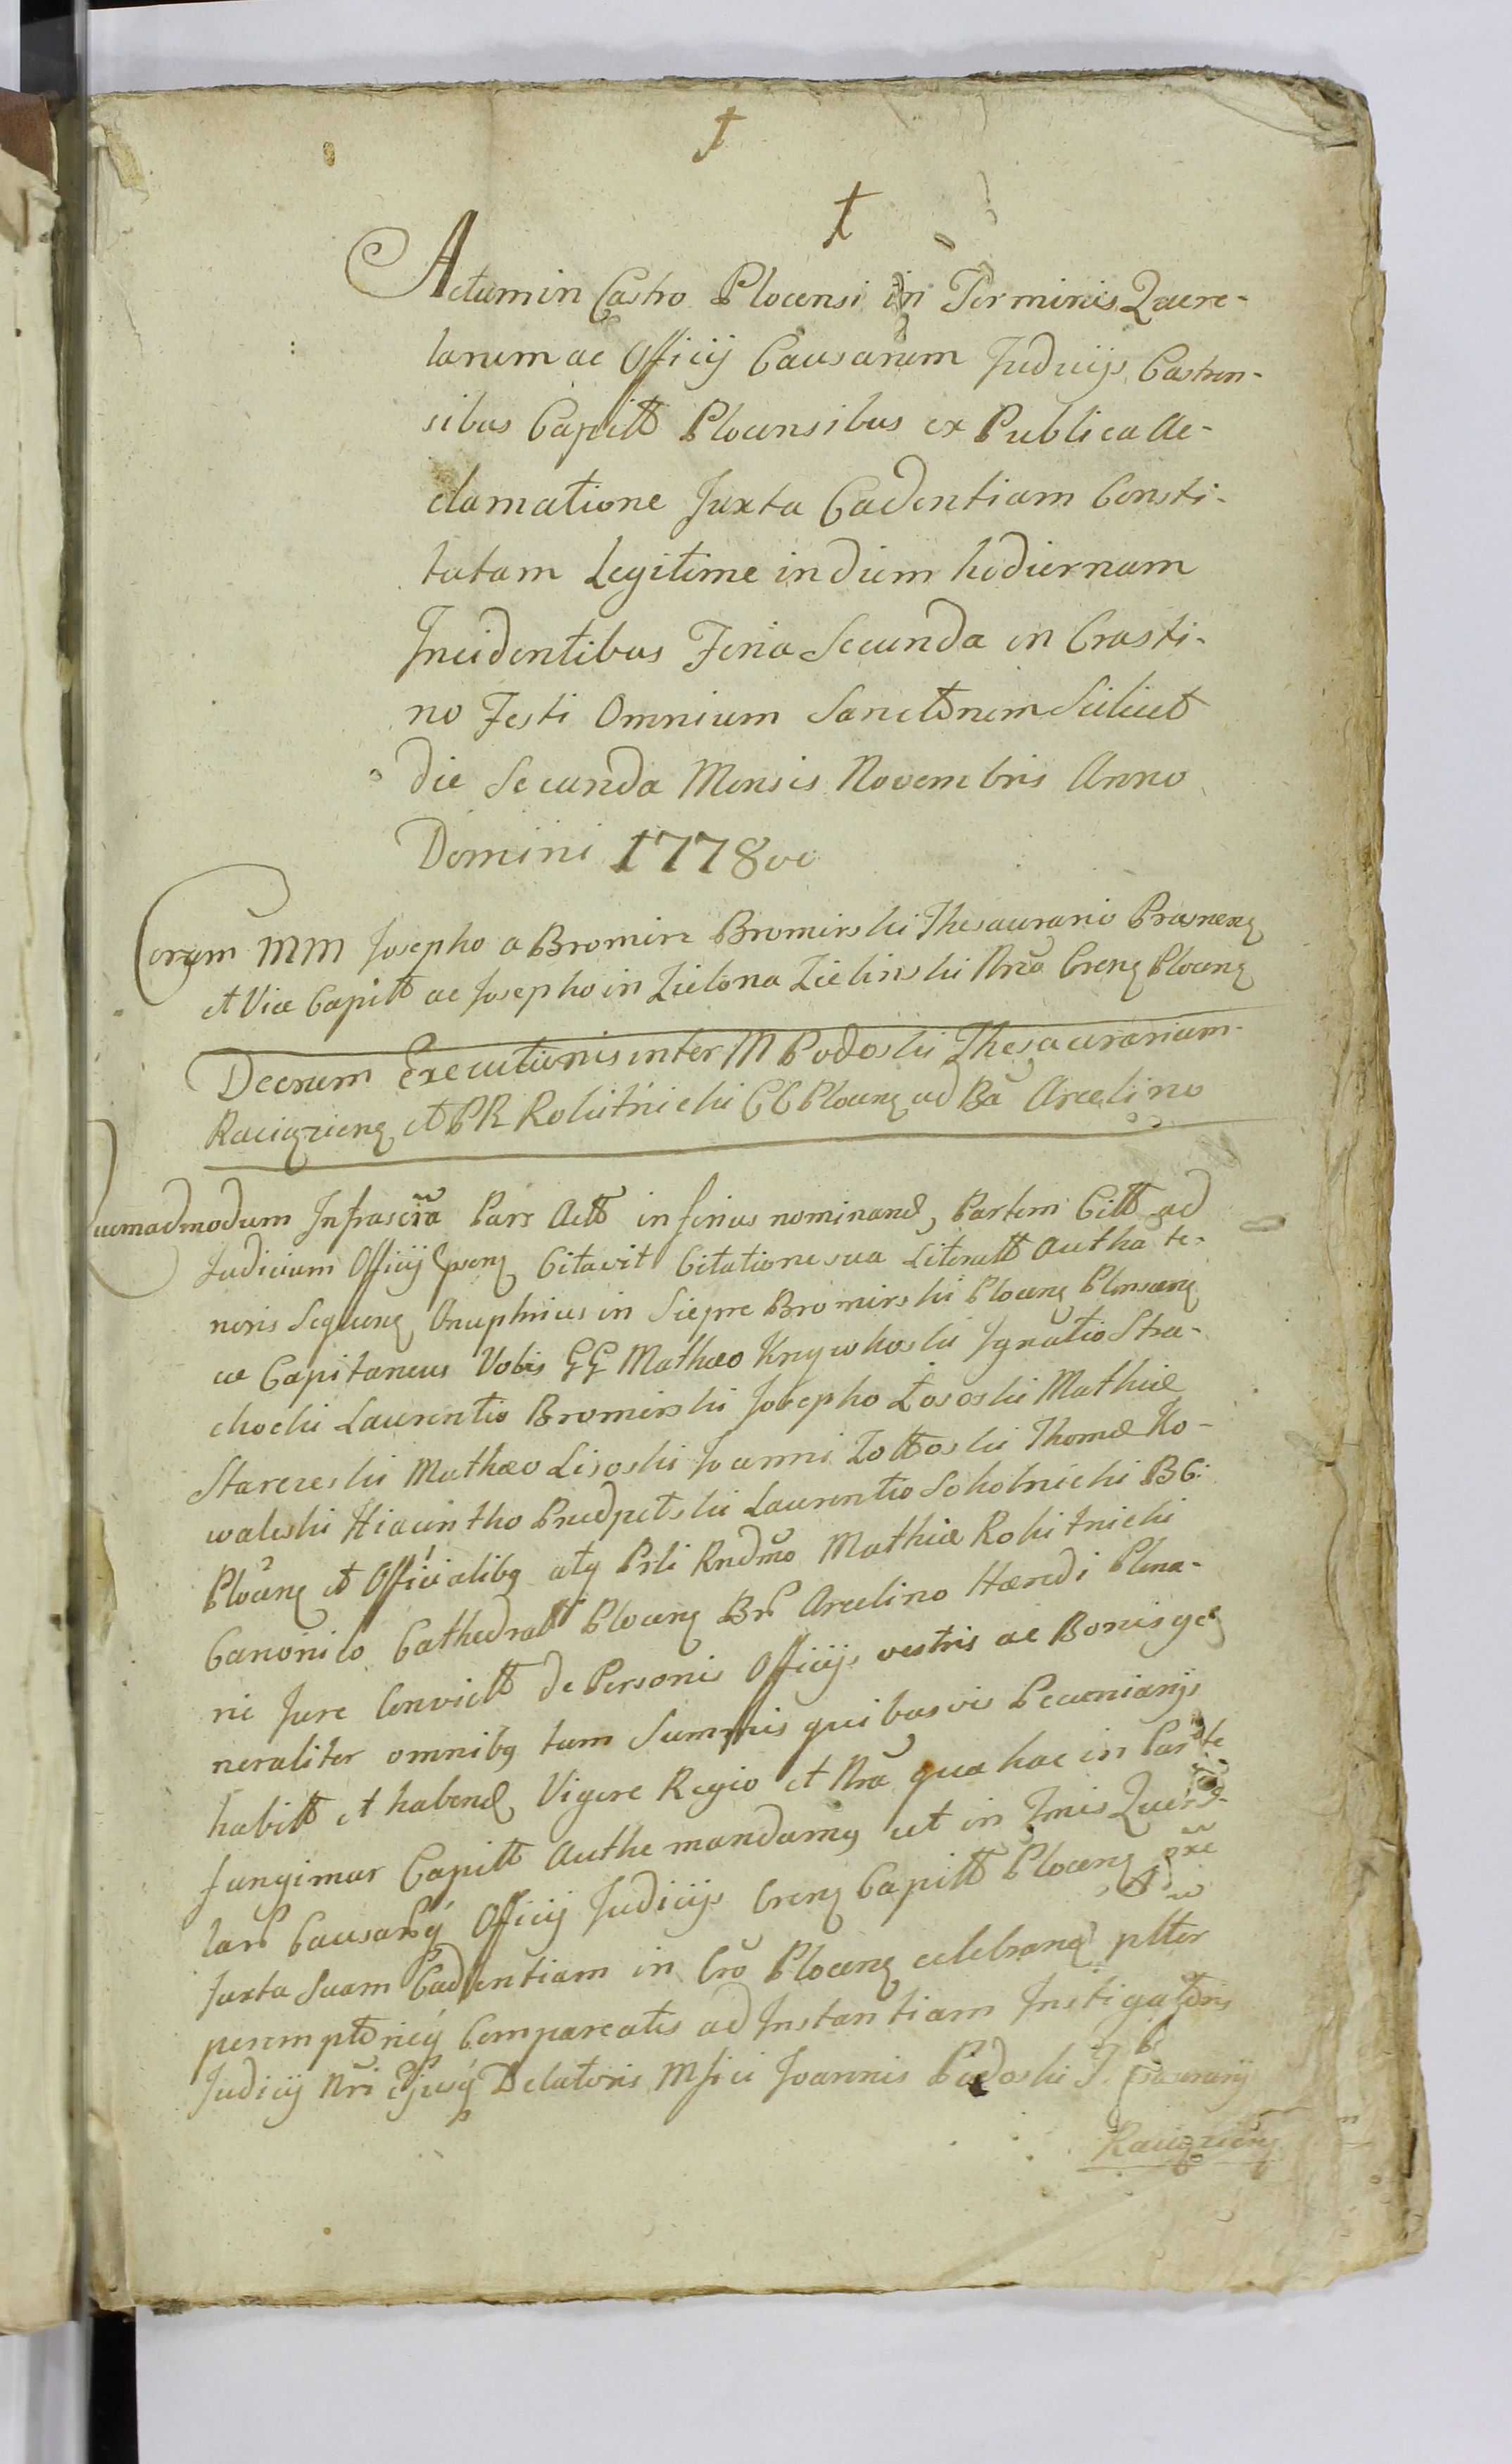 Actum in Castro Plocensi in Terminis Quere-
larum ac Officij Causarum Judicijs Castren-
sibus Capitt Plocensibus ex Publica Ac-
clamatione Juxta Cadentiam Consti-
tutam Legitime in diem hodiernam
Incidentibus Feria Secunda in Crasti-
no Festi Omnium Sanctorum Scilicet
die Secunda Mensis Novembris Anno
Domini 1778
Coram MM Josepho a Bromirz Bromirski Thesaurario Prasnen
et Vice Capitt ac Josepho in Zielona Zielinski Nrio Cren Plocen
Decrum Executionis inter M Podoski Thesaurarium
Raciązien et PR Rokitnicki CC Plocen ad Ba Arcelino
Quemadmodum Infrascra Pars Actt inferius nominand, Partem Citt ad
Judicium Officij psens Citavit Citatione sua Literatt Autha te-
noris Sequen Onuphrius in Siepre Bromirski Plocen Plonscen
ac Capitaneus Vobis GG Mathæo Krzywkoski Ignatio Stra-
chocki Laurentio Bromirski Josepho Lososki Mathiæ
Starczeski Mathæo Lisoski Joanni Zottoski Thomæ Ko-
waleski Hiacintho Prudpetski Laurentio Sokolnicki BC:
Plocen et Officialibq atq Prli Rndmo Mathiæ Rokitnicki
Canonico Cathedralt Plocen Br Arcelino Hæredi Plena-
rie Jure Convictt de Personis Officijs vestris ac Bonis ge-
neraliter omnibq tum Summis quibusvis Pecuniarijs
habitt et habend, Vigore Regio et Nra qua hac in Parte
fungimur Capitt Authe mandamq ut in Tmis Quere-
lar Causarq Officij Judicijs Cren Capitt Plocen
Juxta Suam Cadentiam in Cro Plocen celebran pltter
peremptorieq Compareatis ad Instantiam Instigatoris
Judicij Nri Ejusq Delatoris Mfici Joannis Podoski Thesaurarij
Raciązien